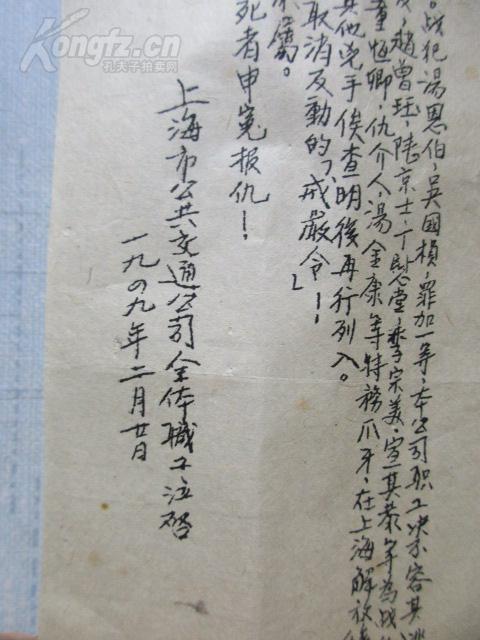 战犯湯恩伯，吳國楨，罪加一等，本公司职工决不容其逃
趙曾珏，陸京士，丁慰堂，李宗美，宣其棻等為战
董恒卿，仇介人，湯金康等特務爪牙，在上海解放
其他兇手俟查明後再行列入。
取消反動的「戒嚴令」！
死者申冤报仇！
上海市公共交通公司全体職工泣啓
一九四九年二月廿日
Kongfz.com
孔夫子拍卖网